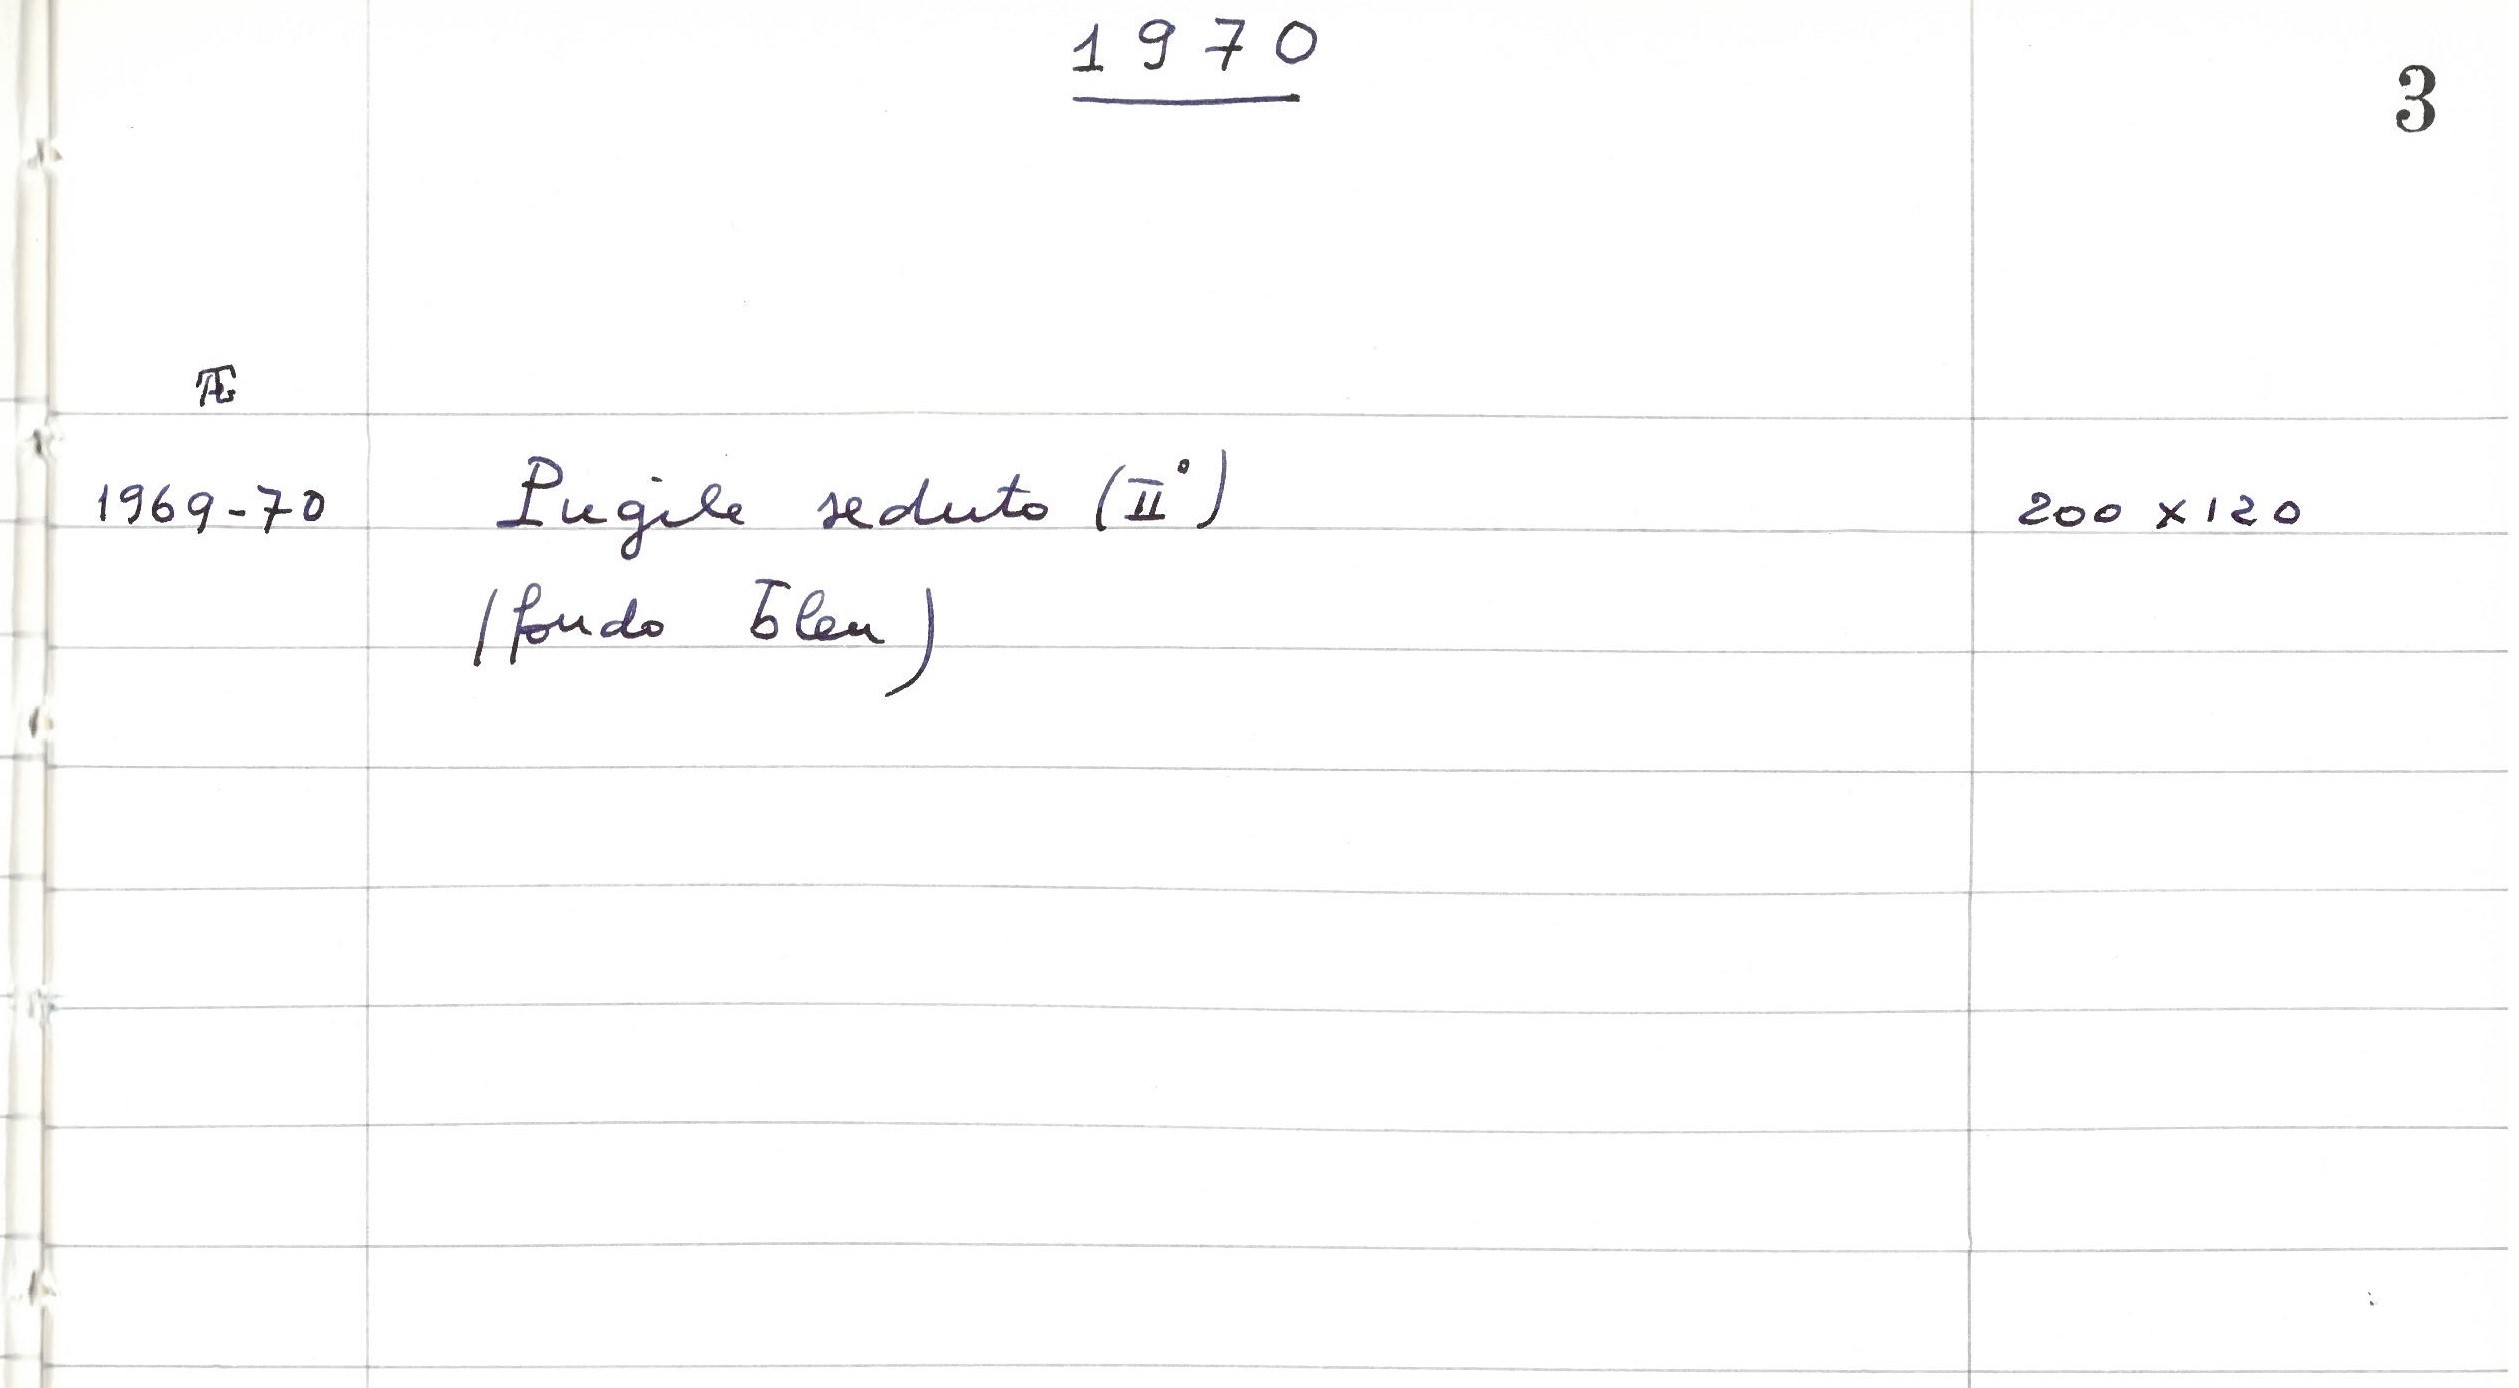 1970
3
1969-70 Pugile seduto (II°) 200 x 120
(fondo bleu)